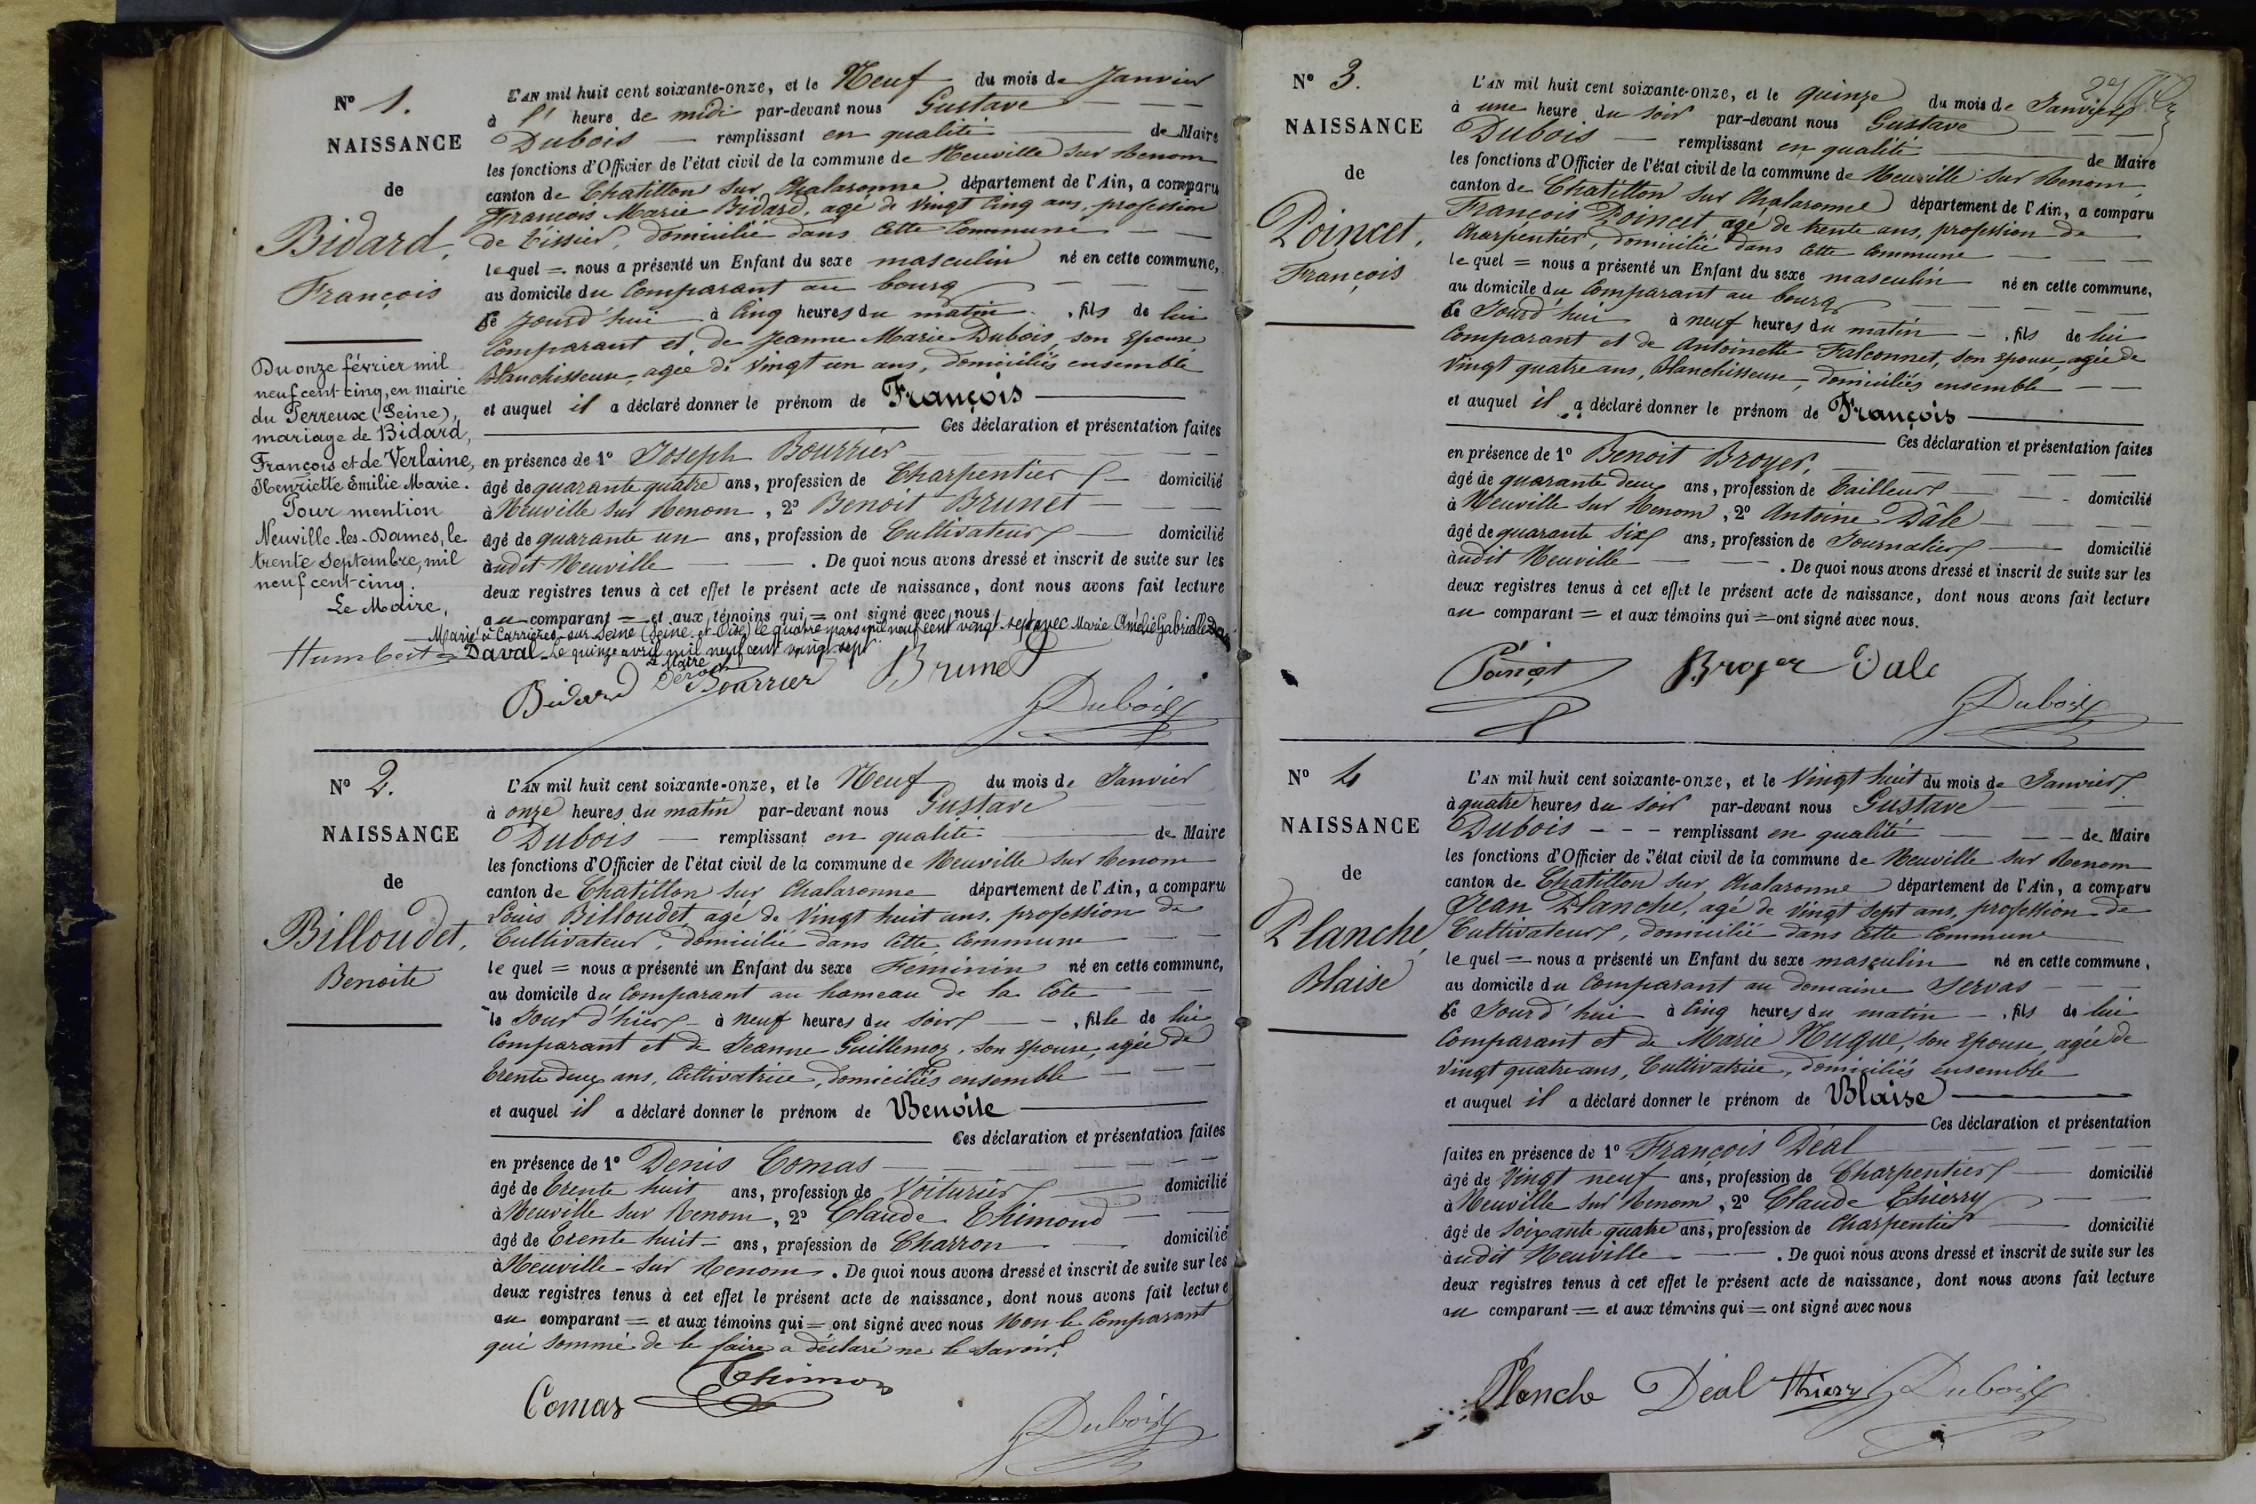 N° 1.
NAISSANCE
de
Bidard,
François
Du onze février mil
neuf cent cinq, en mairie
du Perreux (Seine),
mariage de Bidard,
François et de Verlaine,
Henriette Emilie Marie.
Pour mention
Neuville-les-Dames, le
trente Septembre, mil
neuf cent cinq.
Le Maire,
Humbert
L'AN mil huit cent soixante-onze, et le Neuf du mois de Janvier
à l' heure de midi par-devant nous Gustave
Dubois remplissant en qualité de Maire
les fonctions d'Officier de l'état civil de la commune de Neuville sur Renom
canton de Chatillon sur Chalaronne département de l'Ain, a comparu
François Marie Bidard, agé de Vingt Cinq ans, profession
de Tissier, domicilié dans cette Commune
lequel = nous a présenté un Enfant du sexe masculin né en cette commune,
au domicile du Comparant au bourg
ce jourd'hui à Cinq heures du matin , fils de lui
Comparant et de Jeanne Marie Dubois, son Epouse
Blanchisseuse, agée de Vingt un ans, domiciliés ensemble
et auquel il a déclaré donner le prénom de François
Ces déclaration et présentation faites
en présence de 1° Joseph Bourrier
âgé de quarante quatre ans, profession de Charpentier domicilié
à Neuville sur Renom, 2° Benoit Brunet
âgé de quarante un ans, profession de Cultivateur domicilié
audit Neuville . De quoi nous avons dressé et inscrit de suite sur les
deux registres tenus à cet effet le présent acte de naissance, dont nous avons fait lecture
au comparant = et aux témoins qui = ont signé avec nous
Marié à Carrières-sur-Seine (Seine-et-Oise) le quatre mars mil neuf cent vingt-sept avec Marie Amélie Gabrielle
Daval. Le quinze avril mil neuf cent vingt sept
Le Maire
Bidard Bourrier Brunet
Dubois
N° 2.
NAISSANCE
de
Billoudet,
Benoite
L'AN mil huit cent soixante-onze, et le Neuf du mois de Janvier
à onze heures du matin par-devant nous Gustave
Dubois remplissant en qualité de Maire
les fonctions d'Officier de l'état civil de la commune de Neuville sur Renom
canton de Chatillon sur Chalaronne département de l'Ain, a comparu
Louis Billoudet, agé de Vingt huit ans, profession de
Cultivateur, domicilié dans Cette Commune
lequel = nous a présenté un Enfant du sexe Féminin né en cette commune,
au domicile du Comparant au hameau de la Côte
le Jour d'hier à neuf heures du soir , fille de lui
Comparant et de Jeanne Guillemoz, son Epouse, agée de
Trente deux ans, Cultivatrice, domiciliés ensemble
et auquel il a déclaré donner le prénom de Benoite
Ces déclaration et présentation faites
en présence de 1° Denis Comas
âgé de Trente huit ans, profession de Voiturier domicilié
à Neuville sur Renom, 2° Claude Thimond
âgé de Trente huit ans, profession de Charron domicilié
à Neuville sur Renom. De quoi nous avons dressé et inscrit de suite sur les
deux registres tenus à cet effet le présent acte de naissance, dont nous avons fait lecture
au comparant = et aux témoins qui = ont signé avec nous Non le Comparant
qui sommé de le faire a déclaré ne le savoir.
Comas Thimon
Dubois
N° 3.
NAISSANCE
de
Poincet,
François
L'AN mil huit cent soixante-onze, et le quinze du mois de Janvier
à une heure du soir par-devant nous Gustave
Dubois remplissant en qualité de Maire
les fonctions d'Officier de l'état civil de la commune de Neuville sur Renom
canton de Chatillon sur Chalaronne département de l'Ain, a comparu
François Poincet, agé de trente ans, profession de
Charpentier, domicilié dans Cette Commune
lequel = nous a présenté un Enfant du sexe masculin né en cette commune,
au domicile du Comparant au bourg
ce Jourd'hui à neuf heures du matin , fils de lui
Comparant et de Antoinette Falconnet, son Epouse, agée de
Vingt quatre ans, Blanchisseuse, domiciliés ensemble
et auquel il a déclaré donner le prénom de François
Ces déclaration et présentation faites
en présence de 1° Benoit Broyer,
âgé de quarante deux ans, profession de Tailleur domicilié
à Neuville sur Renom, 2° Antoine Dâle
âgé de quarante six ans, profession de Journalier domicilié
audit Neuville . De quoi nous avons dressé et inscrit de suite sur les
deux registres tenus à cet effet le présent acte de naissance, dont nous avons fait lecture
au comparant = et aux témoins qui = ont signé avec nous.
Poinçt Broyer Dale
Dubois
N° 4
NAISSANCE
de
Planche,
Blaise
L'AN mil huit cent soixante-onze, et le Vingt huit du mois de Janvier
à quatre heures du soir par-devant nous Gustave
Dubois remplissant en qualité de Maire
les fonctions d'Officier de l'état civil de la commune de Neuville sur Renom
canton de Chatillon sur Chalaronne département de l'Ain, a comparu
Jean Planche, agé de Vingt sept ans, profession de
Cultivateur, domicilié dans Cette Commune
lequel = nous a présenté un Enfant du sexe masculin né en cette commune,
au domicile du Comparant au domaine Servas
ce Jourd'hui à Cinq heures du matin , fils de lui
Comparant et de Marie Nugue, son Epouse, agée de
Vingt quatre ans, Cultivatrice, domiciliés ensemble
et auquel il a déclaré donner le prénom de Blaise
Ces déclaration et présentation
faites en présence de 1° François Déal
âgé de Vingt neuf ans, profession de Charpentier domicilié
à Neuville sur Renom, 2° Claude Thierry
âgé de Soixante quatre ans, profession de Charpentier domicilié
audit Neuville . De quoi nous avons dressé et inscrit de suite sur les
deux registres tenus à cet effet le présent acte de naissance, dont nous avons fait lecture
au comparant = et aux témoins qui = ont signé avec nous
Planche Déal Thierry Dubois